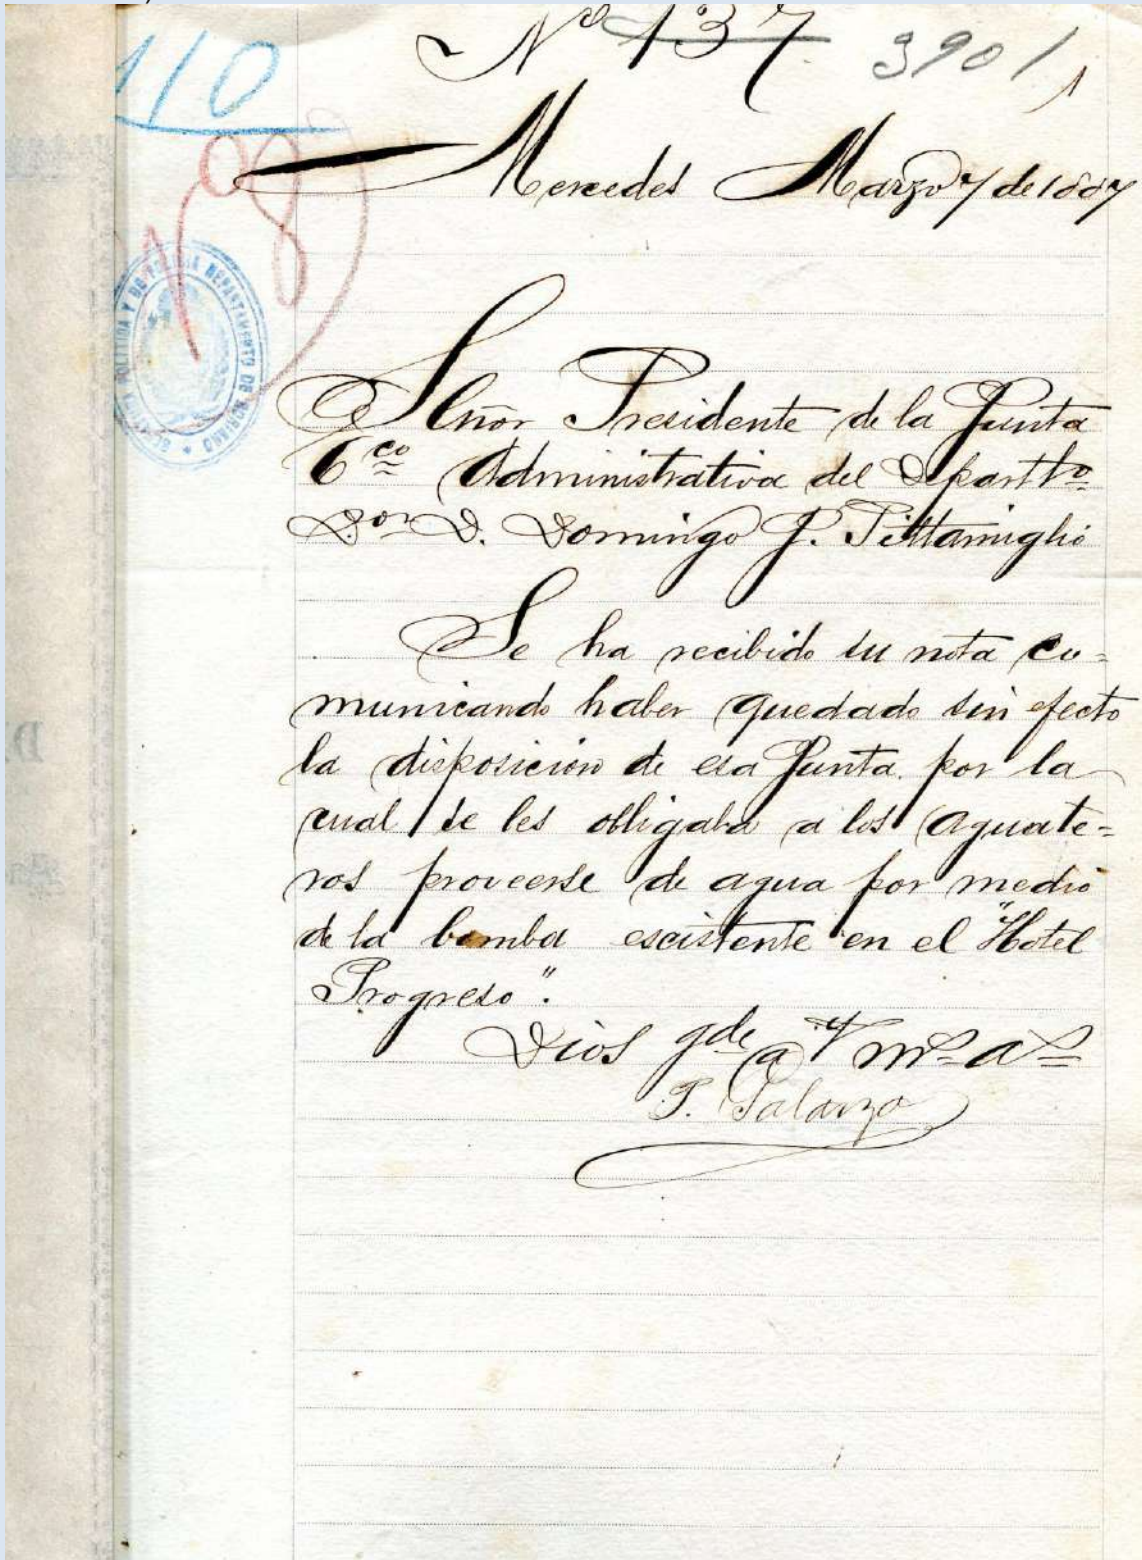 110
Nº 137 3901
98
Mercedes Marzo 7 de 1887
POLITICA Y DE POLICIA DEPARTAMENTO DE SORIANO
Señor Presidente de la Junta
Eco Administrativa del Departto
Dor D. Domingo J. Pittamiglio
Se ha recibido su nota co=
municando haber quedado sin efecto
la disposicion de esa Junta por la
cual se les obligaba a los Aguate=
ros proveerse de agua por medio
de la bomba escistente en el "Hotel
Progreso".
Dios gde a V ms as
P. Galarza